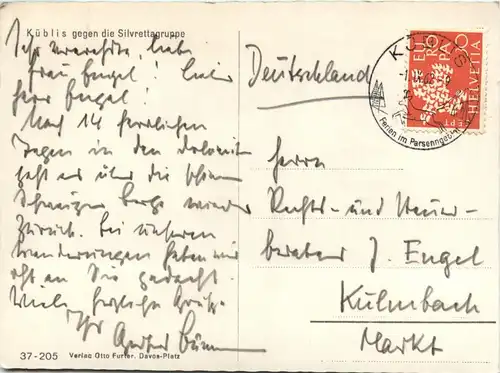 Küblis gegen die Silvrettagruppe
Sehr verehrte, liebe
Frau Engel! Lieber
Herr Engel!
Nach 14 herrlichen
Tagen in den Dolomiten
geht es über die schönen
Schweizer Berge wieder
Zurück. Bei unseren
Wanderungen haben wir
oft an Sie gedacht.
Viele herzliche Grüße
Ihr
37-205 Verlag Otto Furter, Davos-Platz
Deutschland
KÜBLIS
Ferien im Parsenngebiet
EUROPA
HELVETIA
Herrn
Rechts- und Steuer-
berater J. Engel
Kulmbach
Markt